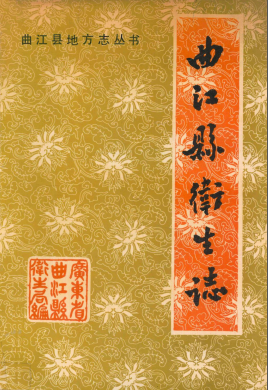 曲江县地方志丛书
曲江縣衛生誌
廣東省
曲江縣
衛生局編